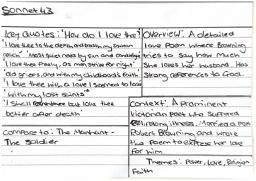 Sonnet 43
Key quotes: "How do I love thee"
"I love thee to the depth and breadth my soul can
reach" "Most quiet need by sun and candlelight"
"I love thee freely, as men strive for right"
"old griefs, and with my childhood's faith"
"I love thee with a love I seemed to lose
with my lost saints"
"I shall but love thee
better after death"
Compare to: The Manhunt -
The Soldier
Overview: A detailed
love poem where Browning
tries to say how much
She loves her husband. Has
Strong references to God.
Context: A prominent
Victorian poet who suffered
lifelong illness. Married a poet
Robert Browning and wrote
the poem to express her love
for him.
Themes: Power, Love, Religion
Faith